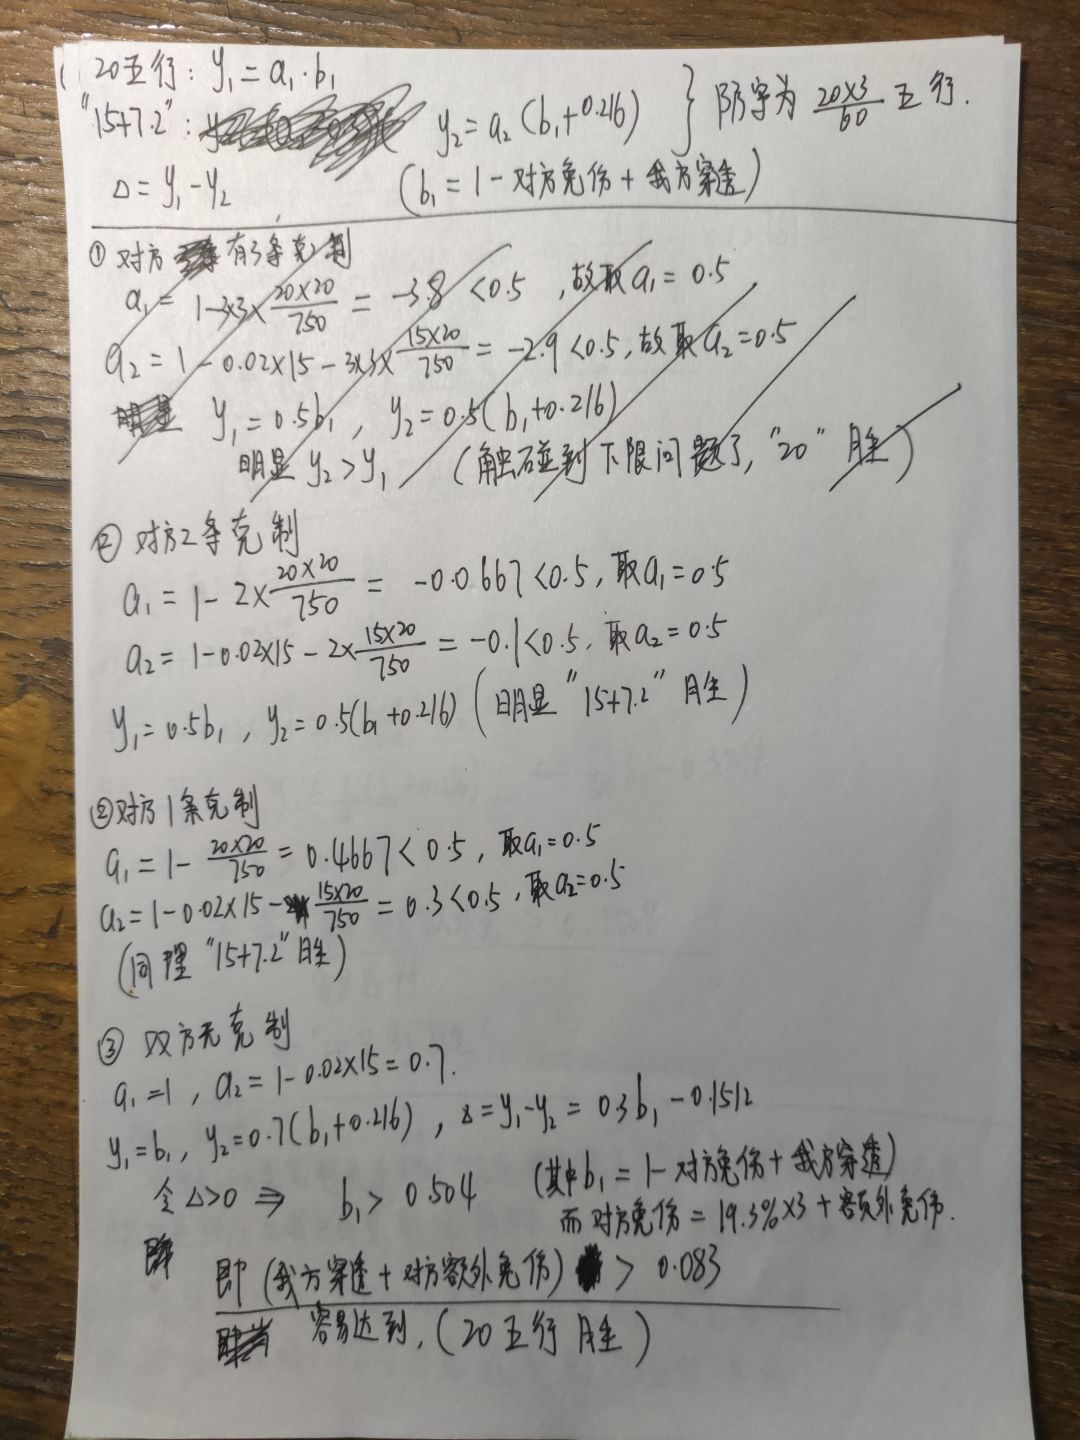 20五行: y₁=a₁·b₁
"15+7.2": y₂=a₂(b₁+0.216) } 防守为 20×3/60 五行.
△=y₁-y₂ (b₁=1-对方免伤+我方穿透)
① 对方有3条克制
a₁=1-3×3×20×20/750=-3.8<0.5, 故取a₁=0.5
a₂=1-0.02×15-3×3×15×20/750=-2.9<0.5, 故取a₂=0.5
明显 y₁=0.5b₁, y₂=0.5(b₁+0.216)
明显 y₂>y₁ (触碰到下限问题了, "20" 胜)
② 对方2条克制
a₁=1-2×20×20/750=-0.0667<0.5, 取a₁=0.5
a₂=1-0.02×15-2×15×20/750=-0.1<0.5, 取a₂=0.5
y₁=0.5b₁, y₂=0.5(b₁+0.216) (明显"15+7.2"胜)
②对方1条克制
a₁=1-20×20/750=0.4667<0.5, 取a₁=0.5
a₂=1-0.02×15-15×20/750=0.3<0.5, 取a₂=0.5
(同理"15+7.2"胜)
③ 双方无克制
a₁=1, a₂=1-0.02×15=0.7.
y₁=b₁, y₂=0.7(b₁+0.216), △=y₁-y₂=0.3b₁-0.1512
令△>0 ⇒ b₁>0.504 (其中b₁=1-对方免伤+我方穿透)
而对方免伤=19.3%×3+额外免伤.
即(我方穿透+对方额外免伤)>0.083
容易达到, (20五行胜)